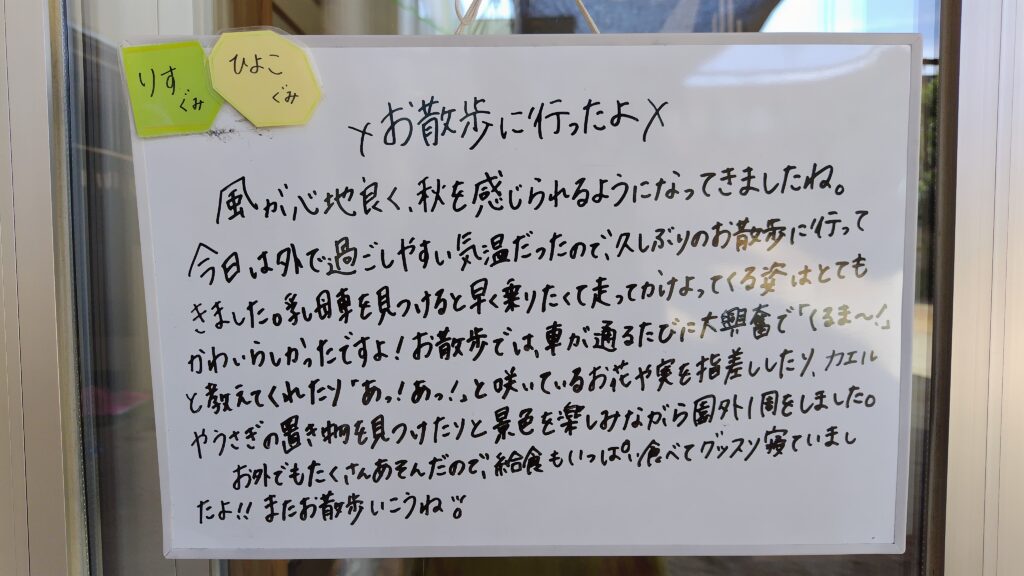 りす
ぐみ
ひよこ
ぐみ
お散歩に行ったよ
風が心地良く、秋を感じられるようになってきましたね。
今日は外で過ごしやすい気温だったので、久しぶりのお散歩に行って
きました。乳母車を見つけると早く乗りたくて走ってかけよってくる姿はとても
かわいらしかったですよ！お散歩では、車が通るたびに大興奮で「くるま〜！」
と教えてくれたり「あっ！あっ！」と咲いているお花や実を指差ししたり、カエル
やうさぎの置き物を見つけたりと景色を楽しみながら園外1周をしました。
お外でもたくさんあそんだので、給食もいっぱい食べてグッスリ寝ていまし
たよ！！またお散歩いこうね。